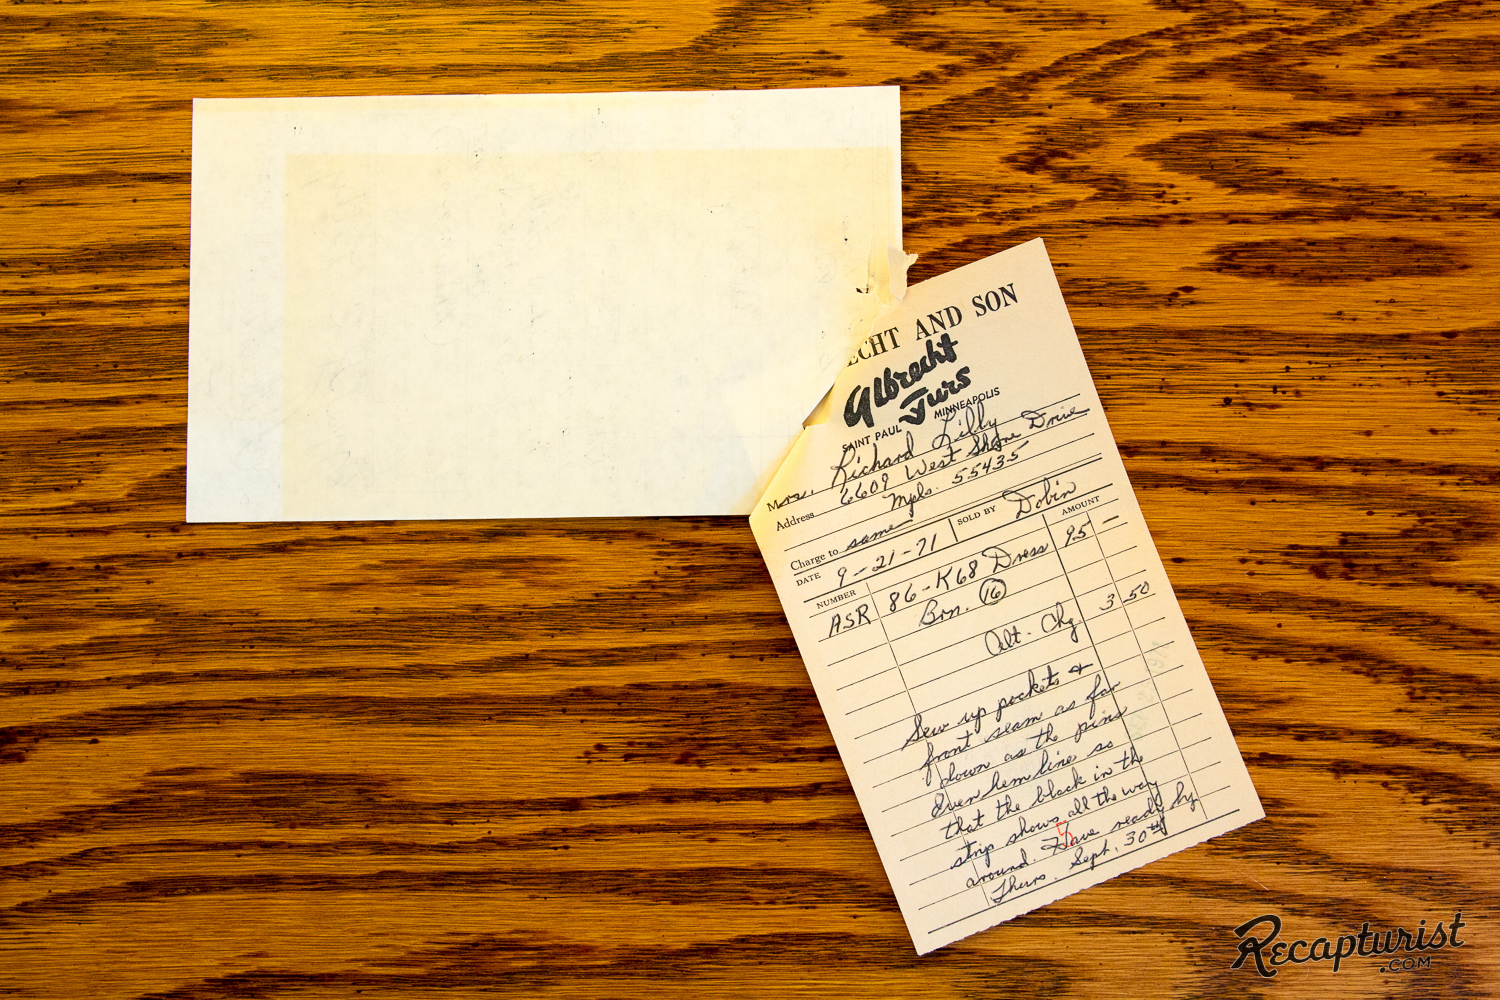 ECHT AND SON
Albrecht
Furs
SAINT PAUL MINNEAPOLIS
Mrs. Richard Lilly
Address 6609 West Shore Drive
Mpls. 55435
Charge to same
DATE 9-21-71 SOLD BY Dobin
NUMBER AMOUNT
ASR 86-K68 Dress 95 —
Brn. 16
Alt. Chg. 3 50
Sew up pockets &
front seam as far
down as the pins
Even hem line so
that the black in the
strip shows all the way
around. Have ready by
Thurs. Sept. 30th
5
Recapturist
.COM